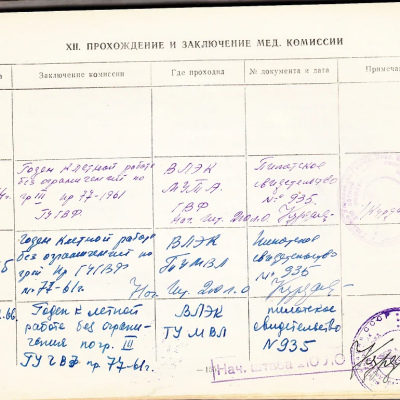 XII. ПРОХОЖДЕНИЕ И ЗАКЛЮЧЕНИЕ МЕД. КОМИССИИ
Заключение комиссии
Где проходил
№ документа и дата
Примеча
Годен к летной работе
без ограничений по
гр III пр 77-1961
ГУГВФ
ВЛЭК
МУТА
ГВФ
Пилотское
свидетельство
№ 935.
Нач. шт.
Годен к летной работе
без ограничений по
гр III пр ГУГВФ
№ 77-61г.
ВЛЭК
ТУМВЛ
Пилотское
свидетельство
№ 935
Нач. шт.
5
.66.
Годен к летной
работе без ограни-
чения по гр. III
ГУГВФ пр 77-61г.
ВЛЭК
ТУ МВЛ
пилотское
свидетельство
№ 935
Нач. штаба ЛО